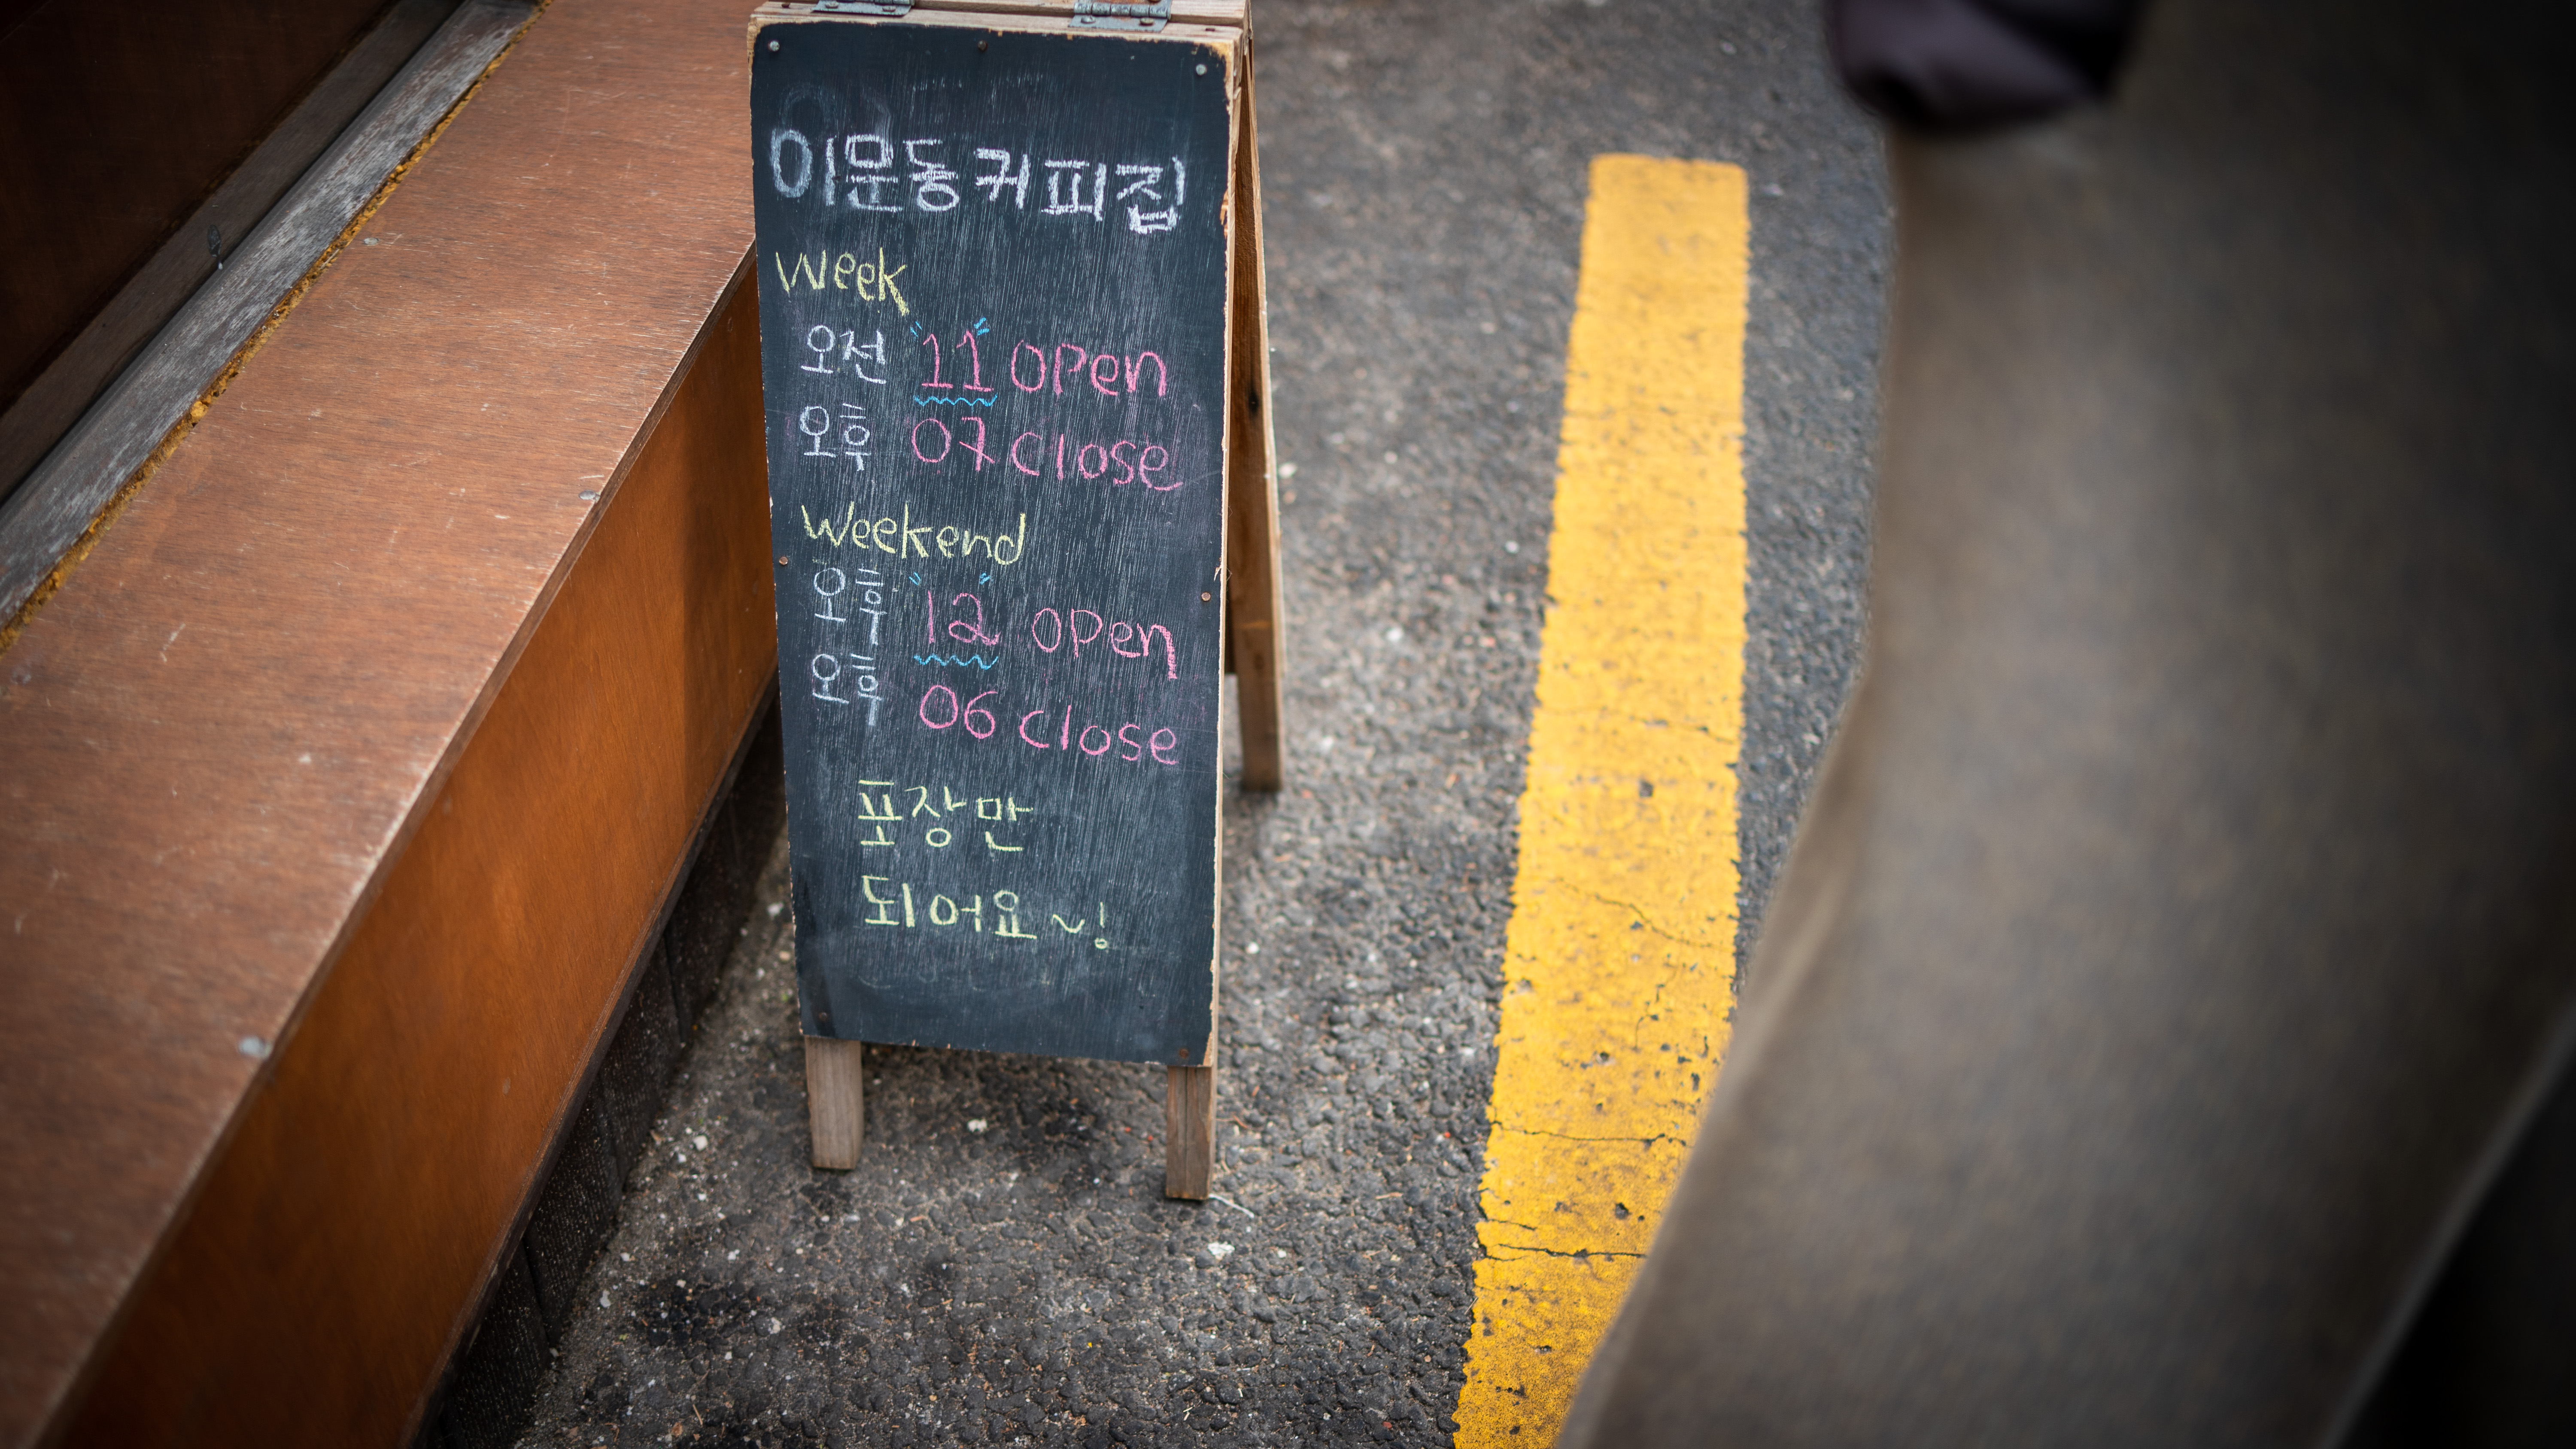 이문동커피집
Week
오전 11 open
오후 07 close
Weekend
오후 12 open
오후 06 close
포장만
되어요~!